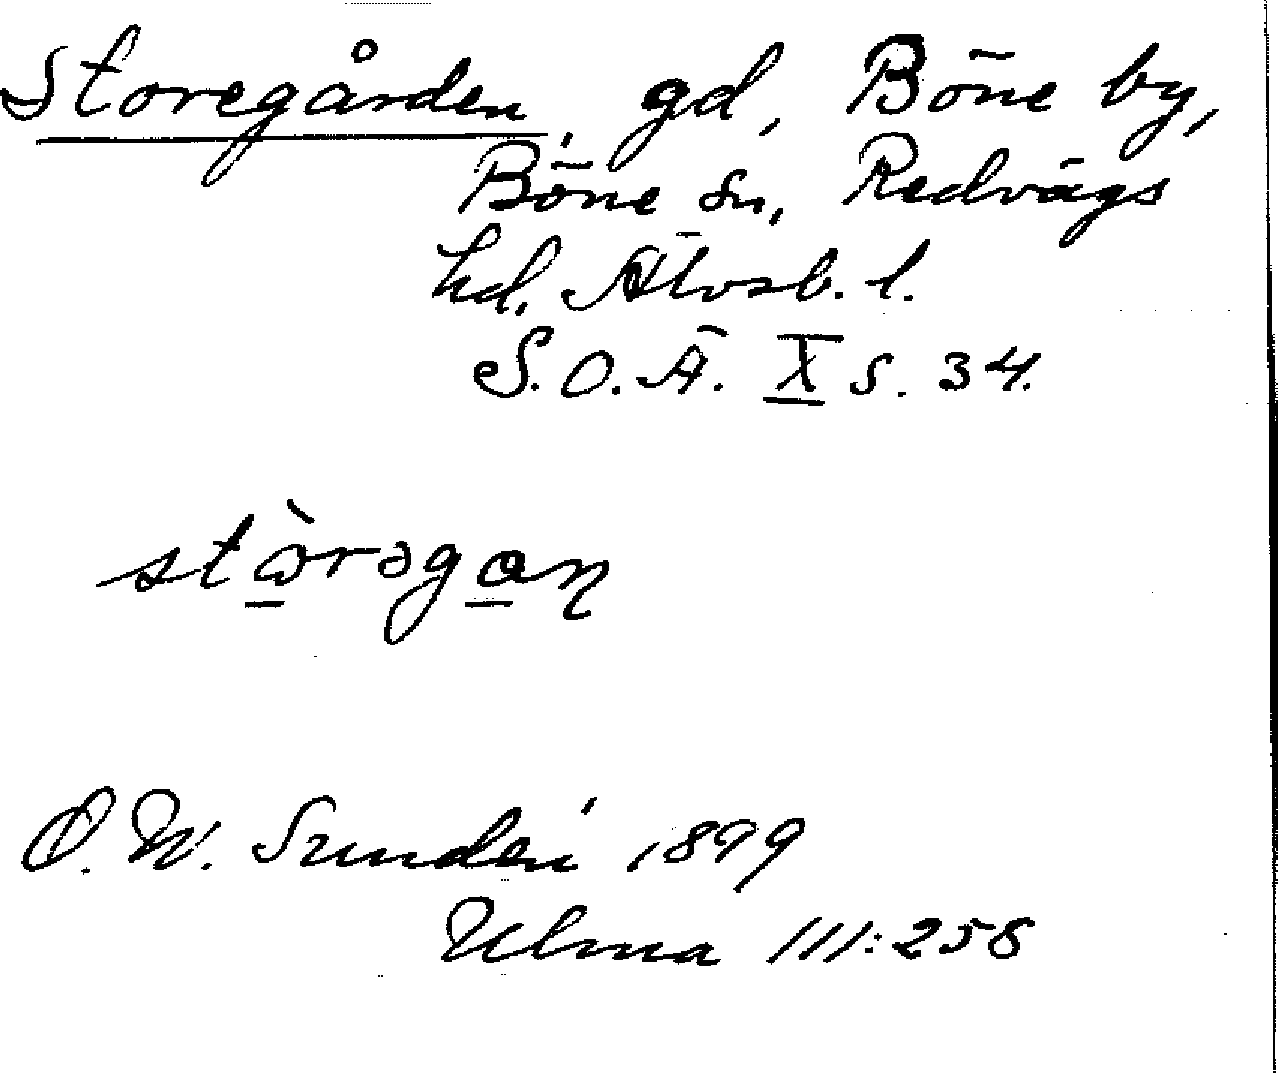 Storegården, gd, Böne by,
Böne sn, Redvägs
hd. Älvsb. l.
S.O.Ä. X s. 34.
D. W. Sundén 1899
Ulma 111:258